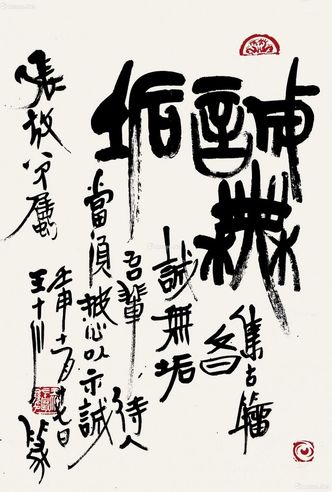 誠無垢
集古籀
文曰
誠無垢
吾輩待人
當須披心以示誠
張放公屬
壬申十一月
王十川篆